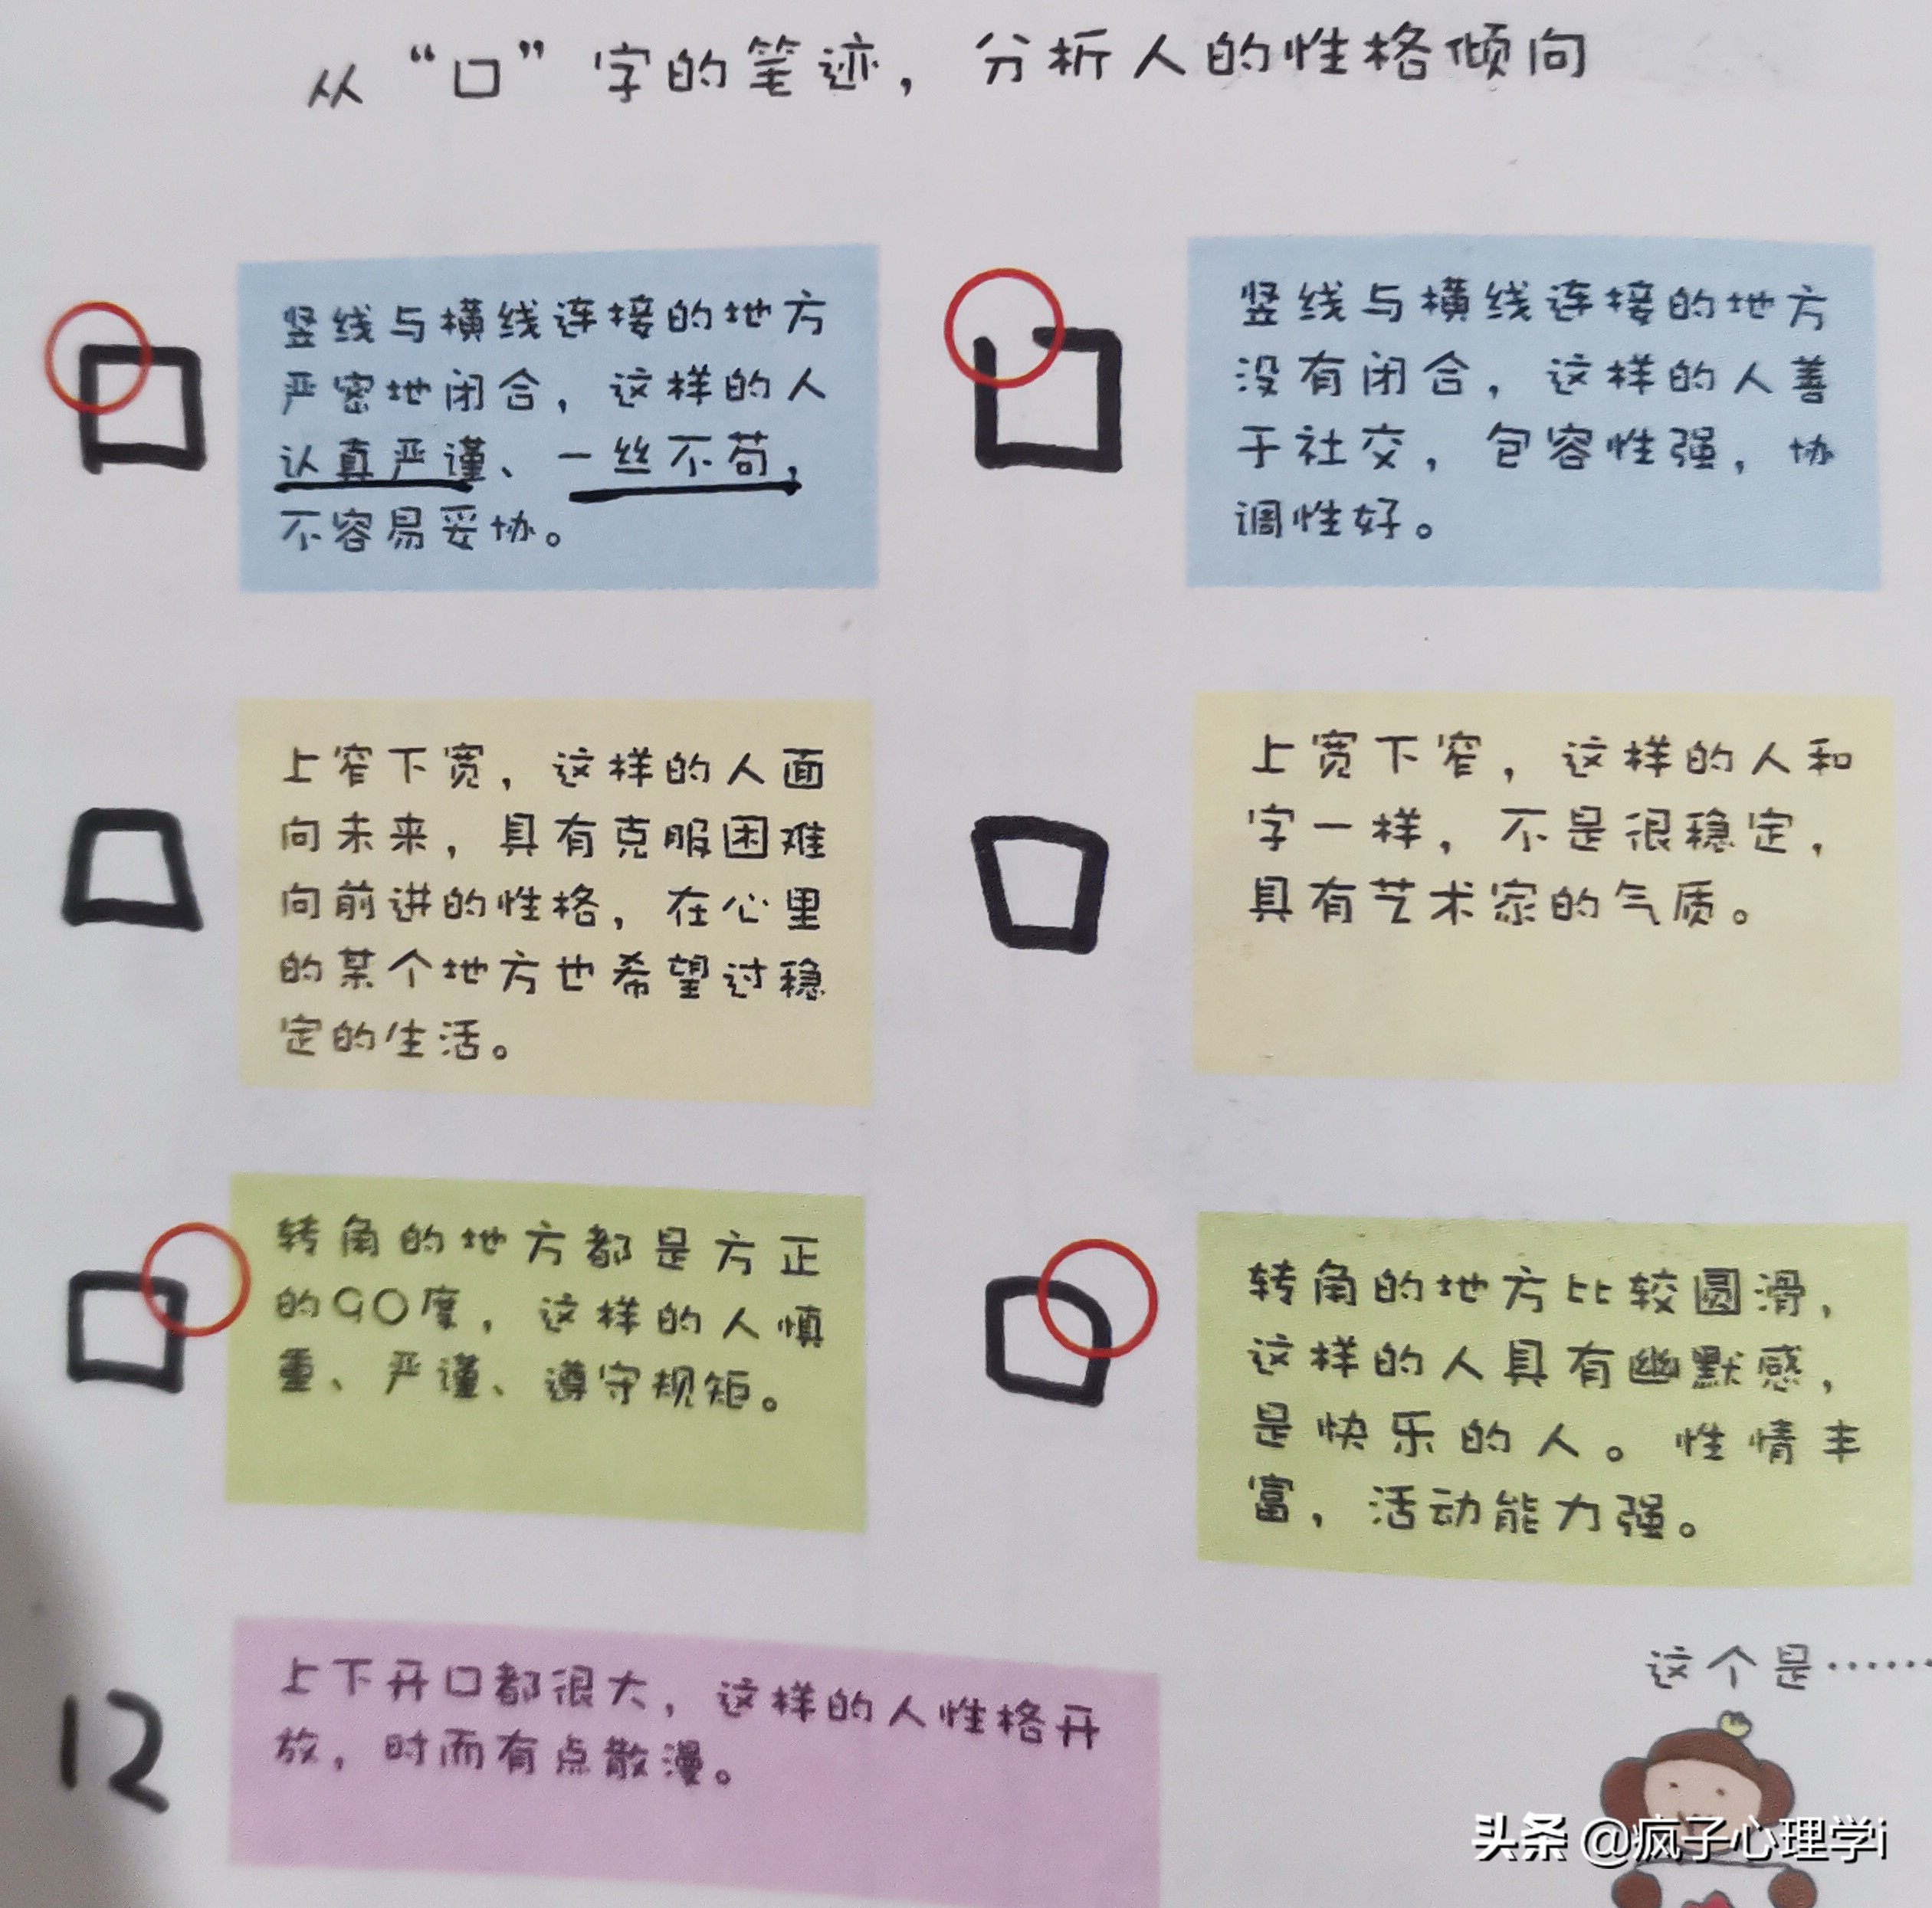 从“口”字的笔迹，分析人的性格倾向
竖线与横线连接的地方
严密地闭合，这样的人
认真严谨、一丝不苟，
不容易妥协。
竖线与横线连接的地方
没有闭合，这样的人善
于社交，包容性强，协
调性好。
上窄下宽，这样的人面
向未来，具有克服困难
向前进的性格，在心里
的某个地方也希望过稳
定的生活。
上宽下窄，这样的人和
字一样，不是很稳定，
具有艺术家的气质。
转角的地方都是方正
的90度，这样的人慎
重、严谨、遵守规矩。
转角的地方比较圆滑，
这样的人具有幽默感，
是快乐的人。性情丰
富，活动能力强。
上下开口都很大，这样的人性格开
放，时而有点散漫。
这个是……
头条 @疯子心理学i